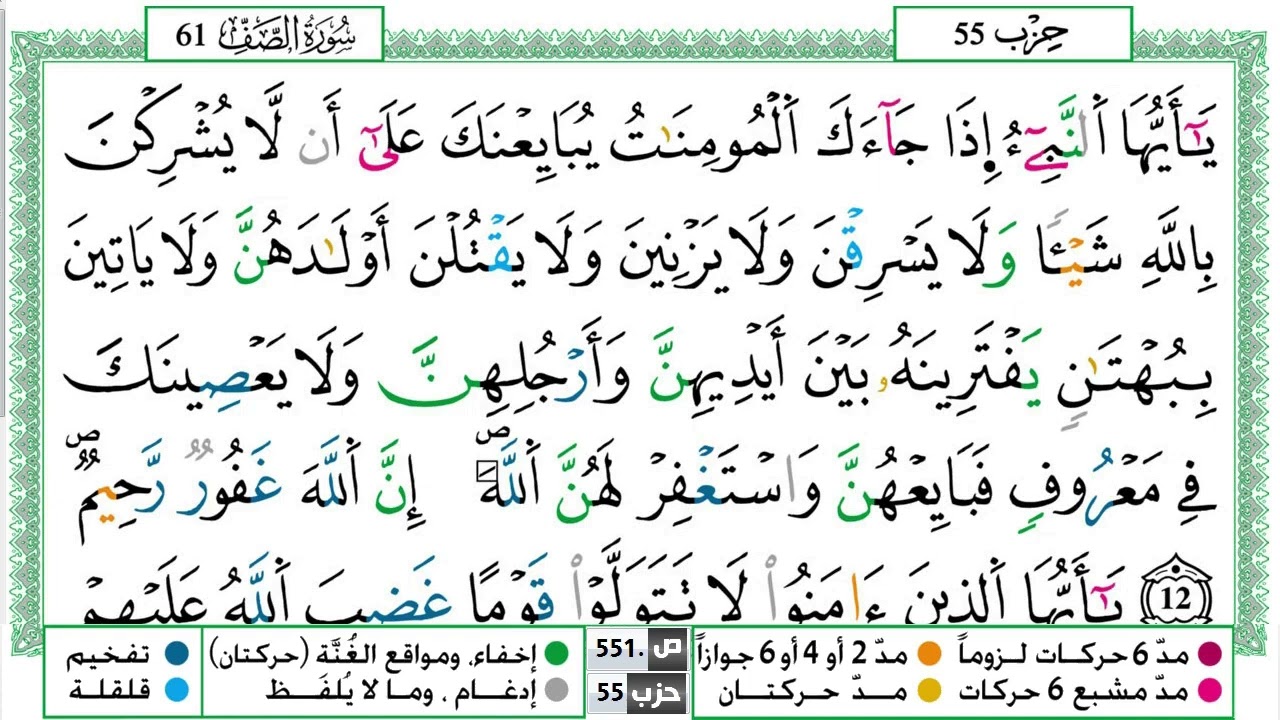 حِزْب 55
سُورَةُ الصَّفِّ 61
يَٰٓأَيُّهَا اَ۬لنَّبِےٓءُ اِ۪ذَا جَآءَكَ اَ۬لْمُومِنَٰتُ يُبَايِعْنَكَ عَلَىٰٓ أَن لَّا يُشْرِكْنَ
بِاللَّهِ شَيْـٔاً وَلَا يَسْرِقْنَ وَلَا يَزْنِينَ وَلَا يَقْتُلْنَ أَوْلَٰدَهُنَّ وَلَا يَاتِينَ
بِبُهْتَٰنٍ يَفْتَرِينَهُۥ بَيْنَ أَيْدِيهِنَّ وَأَرْجُلِهِنَّ وَلَا يَعْصِينَكَ
فِے مَعْرُوفٍ فَبَايِعْهُنَّ وَاسْتَغْفِرْ لَهُنَّ اَ۬للَّهَۖ إِنَّ اَ۬للَّهَ غَفُورٌ رَّحِيمٌۖ
12 يَٰٓأَيُّهَا اَ۬لذِينَ ءَامَنُواْ لَا تَتَوَلَّوْاْ قَوْماً غَضِبَ اَ۬للَّهُ عَلَيْهِمْ
مدّ 6 حركات لـزوماً مدّ 2 أو 4 أو 6 جوازاً ص .551 إخفاء، ومواقع الغُنَّة (حركتان) تفخيم
مدّ مشبع 6 حركات مـدّ حركتـان حزب 55 إدغـام ، ومـا لا يُلفَـظ قلقلـة